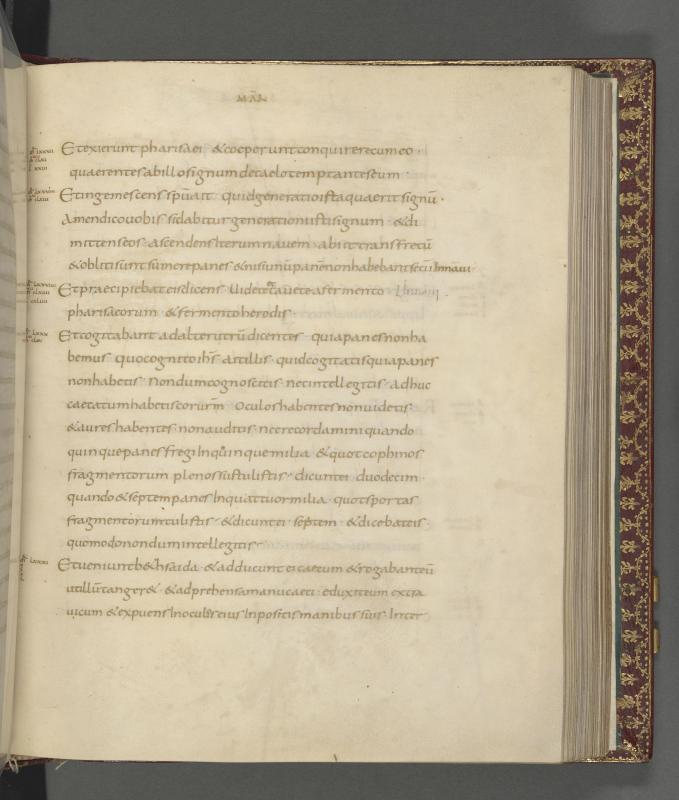 MAR
Et exierunt pharisaei · & coeperunt conquirere cum eo ·
quaerentes ab illo signum de caelo temptantes eum ·
Et ingemescens sp̄u ait · quid generatio ista quaerit signū ·
Amen dico vobis si dabitur generationi isti signum · & di
mittens eos · Ascendens iterum navem · abiit trans fretū
& obliti sunt sumere panes & nisi unū panē non habebant secū In navi
Et praecipiebat eis dicens · Videte & cavete a fermento
pharisaeorum · & fermento herodis ·
Et cogitabant ad alterutrū dicentes · quia panes non ha
bemus · quo cognito ihs̄ ait illis · quid cogitatis quia panes
non habetis · Nondum cognoscitis nec intellegitis · Adhuc
caecatum habetis cor vrm̄ · Oculos habentes non videtis
& aures habentes non auditis · nec recordamini quando
quinque panes fregi In quinque milia · & quot cophinos
fragmentorum plenos sustulistis · dicunt ei duodecim ·
quando & septem panes In quattuor milia · quot sportas
fragmentorum tulistis · & dicunt ei septem · & dicebat eis ·
quomodo nondum intellegitis
Et veniunt b&hsaida · & adducunt ei caecum & rogabant eū
ut illū tanger& · & adprehensa manu caeci · eduxit eum extra
vicum & expuens In oculos eius Inpositis manibus suis · Inter